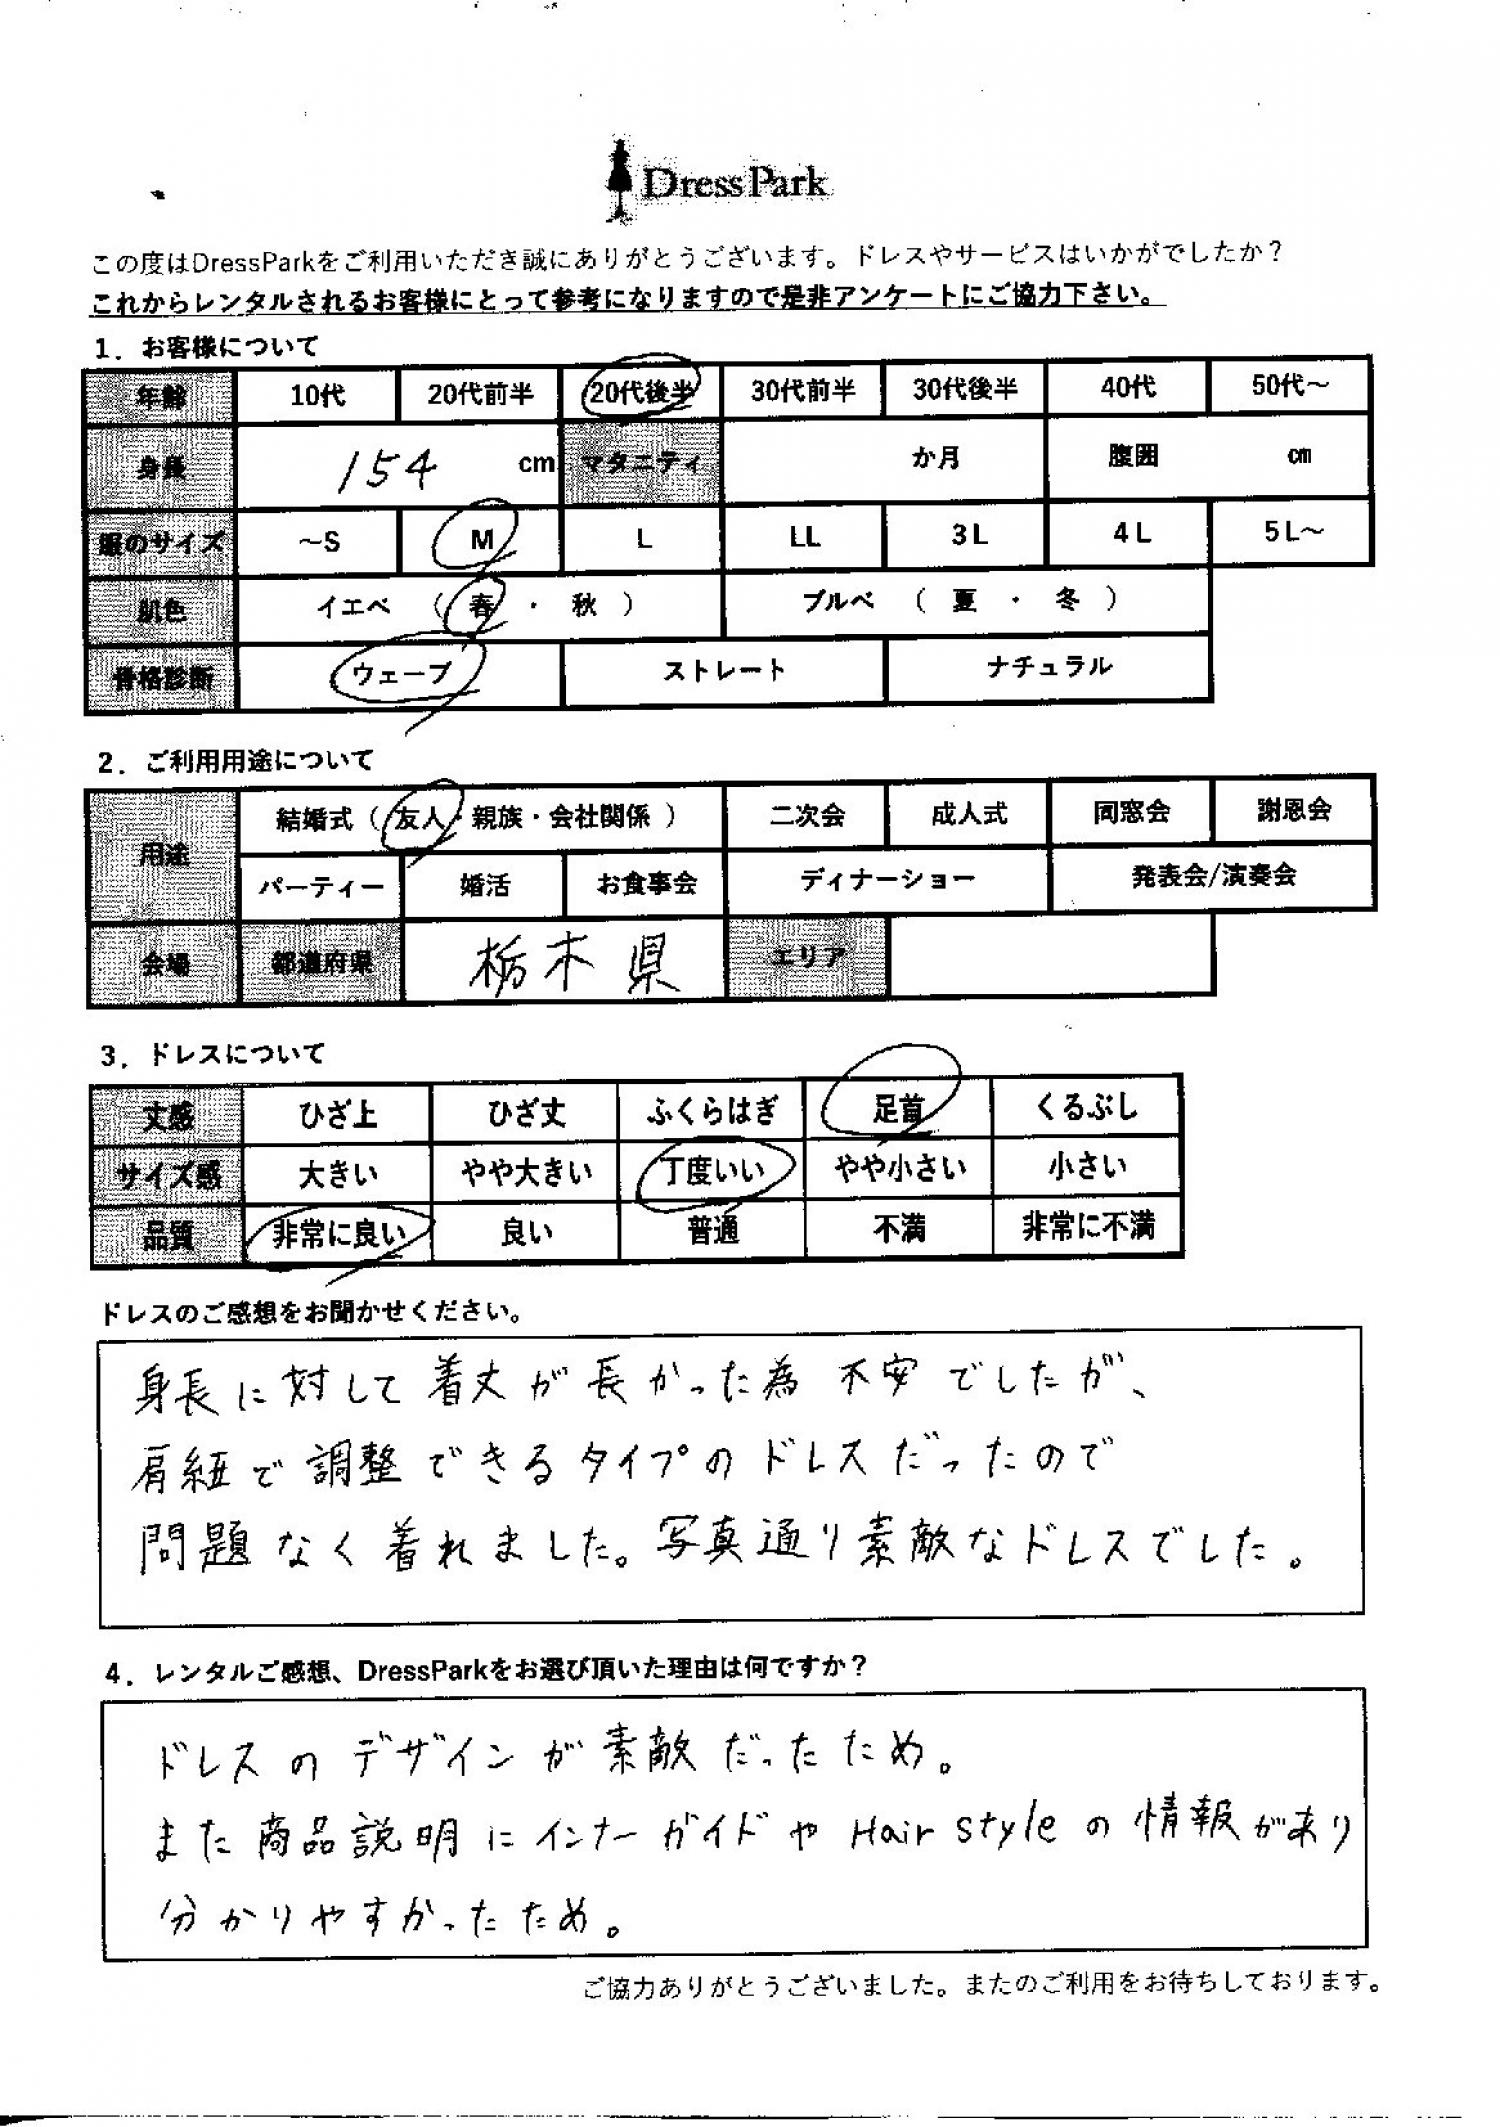 DressPark
この度はDressParkをご利用いただき誠にありがとうございます。ドレスやサービスはいかがでしたか？
これからレンタルされるお客様にとって参考になりますので是非アンケートにご協力下さい。
1．お客様について
年齢 10代 20代前半 20代後半 30代前半 30代後半 40代 50代～
身長 154 cm マタニティ か月 腹囲 cm
服のサイズ ～S M L LL 3L 4L 5L～
肌色 イエベ （ 春 ・ 秋 ） ブルベ （ 夏 ・ 冬 ）
骨格診断 ウェーブ ストレート ナチュラル
2．ご利用用途について
用途 結婚式（ 友人・親族・会社関係 ） 二次会 成人式 同窓会 謝恩会
パーティー 婚活 お食事会 ディナーショー 発表会/演奏会
会場 都道府県 栃木県 エリア
3．ドレスについて
丈感 ひざ上 ひざ丈 ふくらはぎ 足首 くるぶし
サイズ感 大きい やや大きい 丁度いい やや小さい 小さい
品質 非常に良い 良い 普通 不満 非常に不満
ドレスのご感想をお聞かせください。
身長に対して着丈が長かった為 不安でしたが、
肩紐で調整できるタイプのドレスだったので
問題なく着れました。写真通り素敵なドレスでした。
4．レンタルご感想、DressParkをお選び頂いた理由は何ですか？
ドレスのデザインが素敵だったため。
また商品説明にインナーガイドやHair styleの情報があり
分かりやすかったため。
ご協力ありがとうございました。またのご利用をお待ちしております。